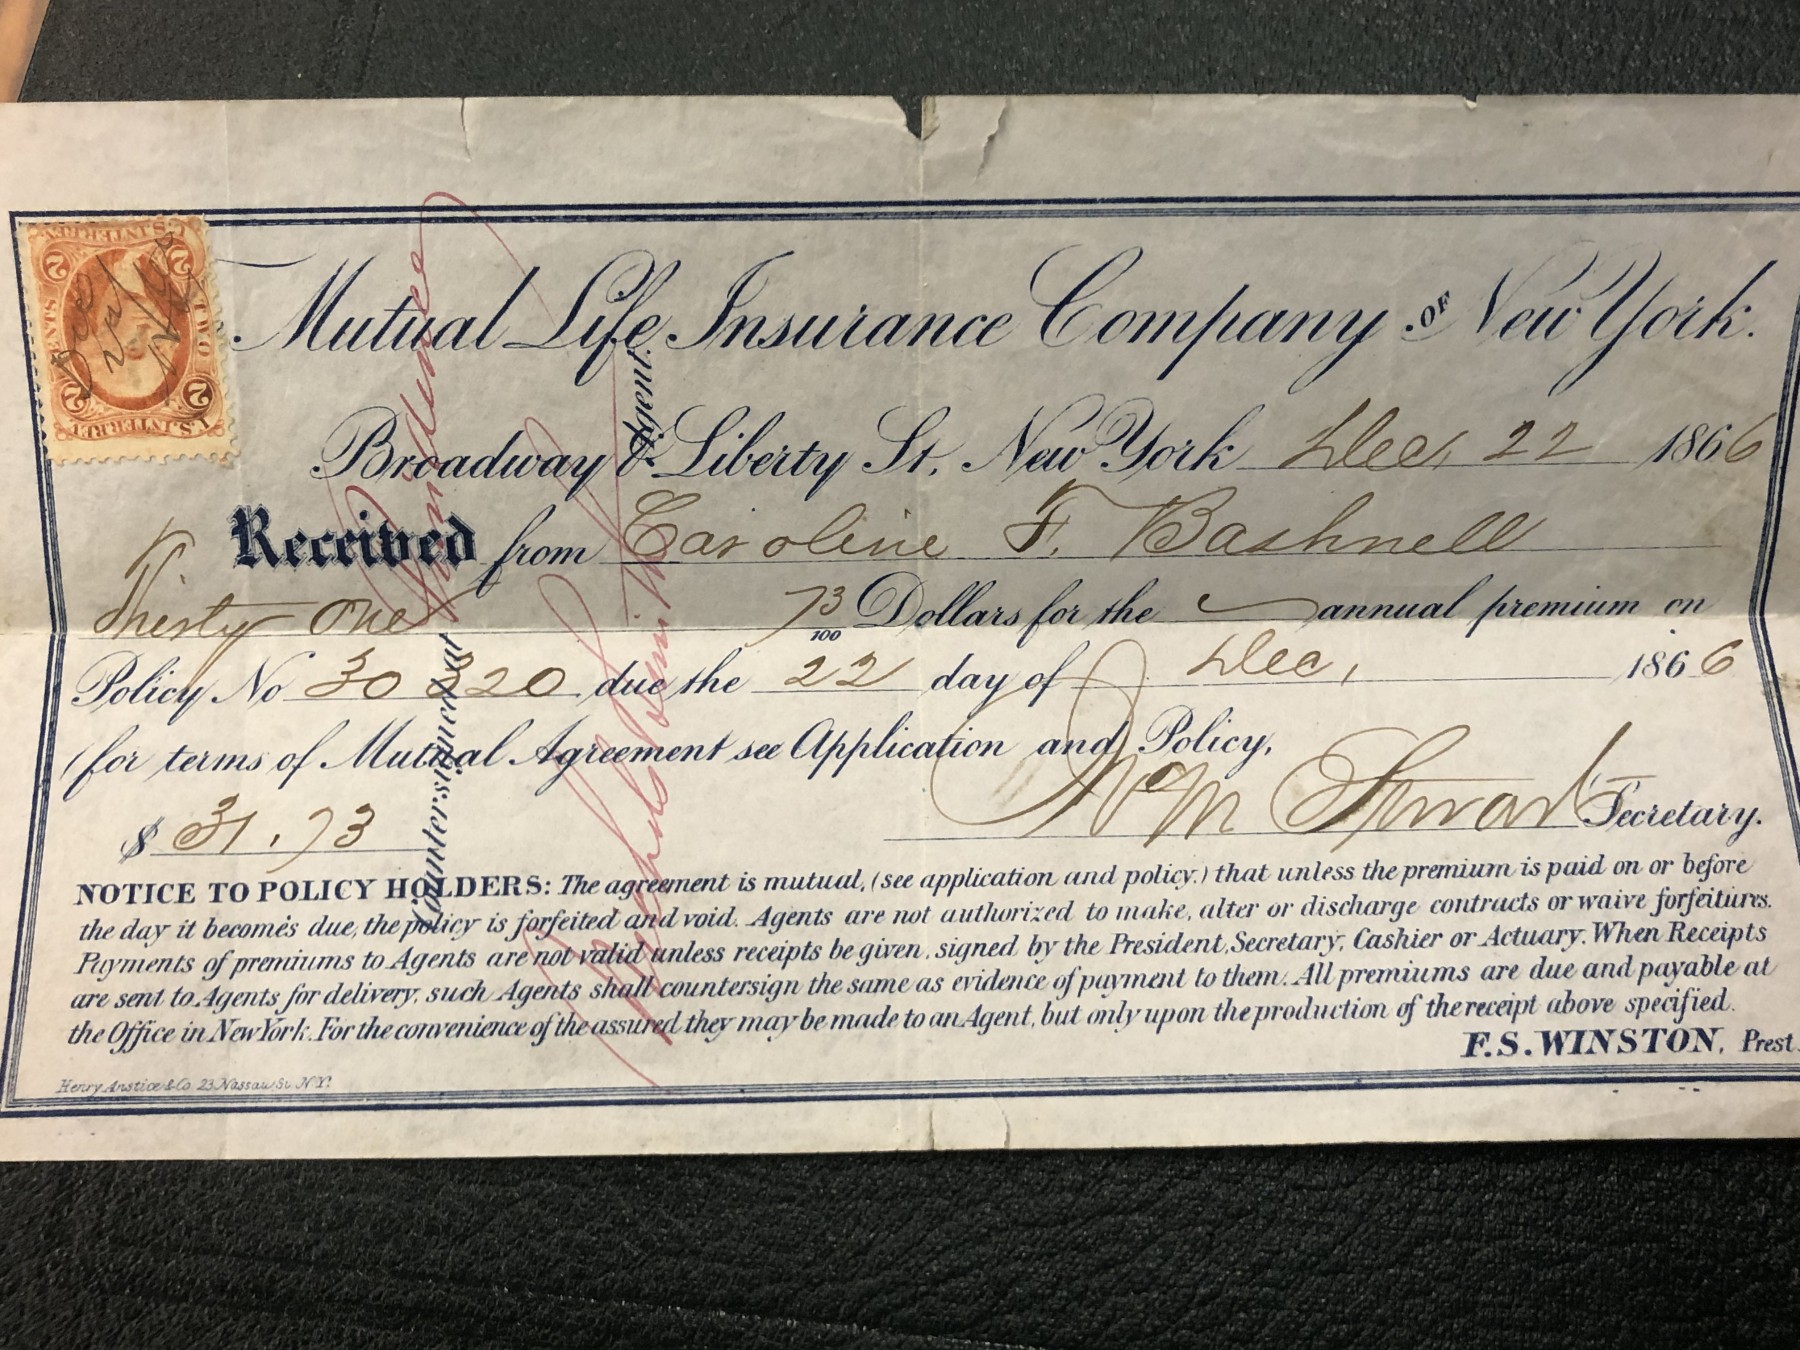 Mutual Life Insurance Company OF New York.
Broadway & Liberty St, New York Dec, 22 1866
Received from Caroline F. Bashnell
Thirty One 73/100 Dollars for the annual premium on
Policy No 30 320 due the 22 day of Dec, 1866
(for terms of Mutual Agreement see Application and Policy,
$ 31.73 Secretary.
Countersigned at Providence
Agent.
NOTICE TO POLICY HOLDERS: The agreement is mutual, (see application and policy.) that unless the premium is paid on or before
the day it becomes due, the policy is forfeited and void. Agents are not authorized to make, alter or discharge contracts or waive forfeitures.
Payments of premiums to Agents are not valid unless receipts be given, signed by the President, Secretary, Cashier or Actuary. When Receipts
are sent to Agents for delivery, such Agents shall countersign the same as evidence of payment to them. All premiums are due and payable at
the Office in New York. For the convenience of the assured they may be made to an Agent, but only upon the production of the receipt above specified.
F.S. WINSTON, Prest.
Henry Anstice & Co. 23 Nassau St N.Y.
U.S. INTER. REV.
TWO CENTS
2 2 2 2